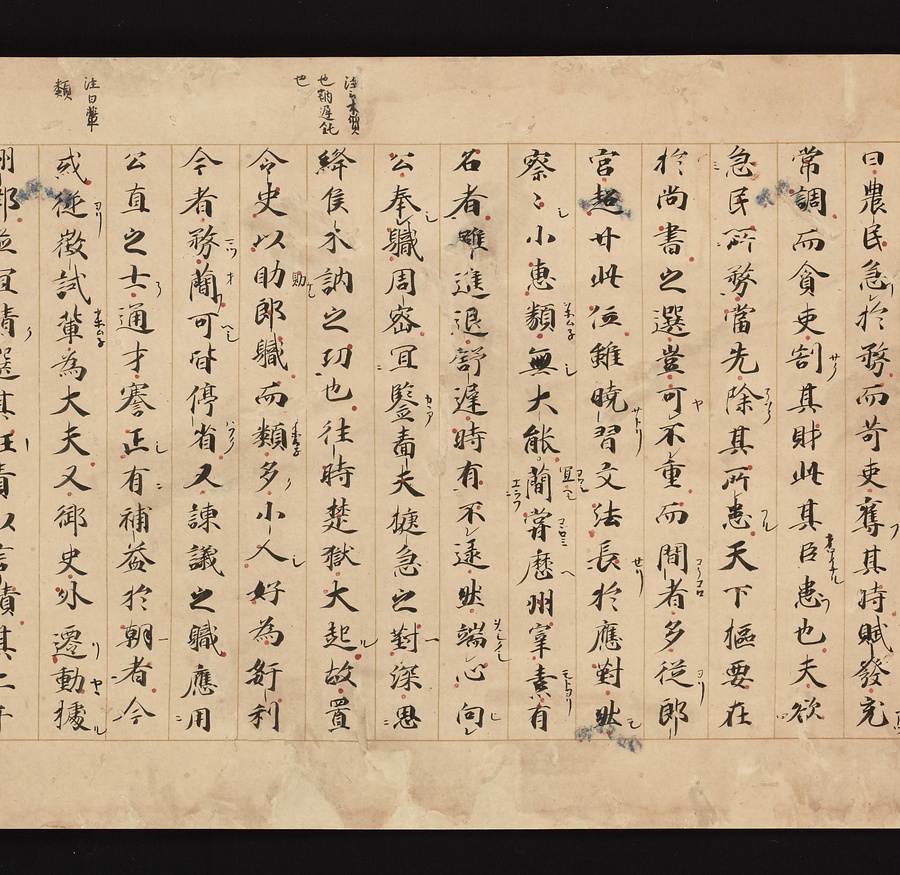 曰農民急於務而苛吏奪其時賦發充
常調而貪吏割其財此其臣患也夫欲
急民所務當先除其所患天下樞要在
於尚書之選豈可不重而間者多從郎
官超升此位雖曉習文法長於應對然
察〻小惠類無大能蕳甞歷州宰素有
宜
名者雖進退舒遲時有不逮然端心向
公奉職周密宜鑒嗇夫捷急之對深思
注云木質
也訥遲鈍
也
絳侯木訥之功也往時楚獄大起故置
令史以助郎職而類多小人好為姧利
助
今者務蕳可皆停省又諫議之職應用
公直之士通才謇正有補益於朝者今
注曰輩
類
或從徴試輩為大夫又御史外遷動據
州郡並宜清選其任責以言績其二千